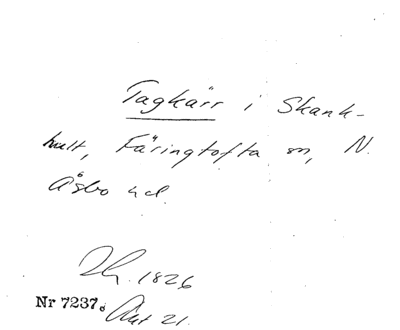 Tagkärr i Skank-
hult, Färingtofta sn, N.
Åsbo hd.
1826
Nr 7237. Akt 21.